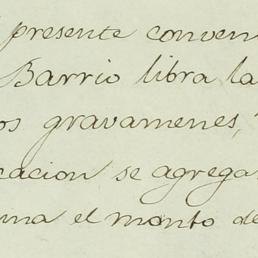 presente conven
Barrio libra la
os gravamenes,
cacion se agrega
una el monto de